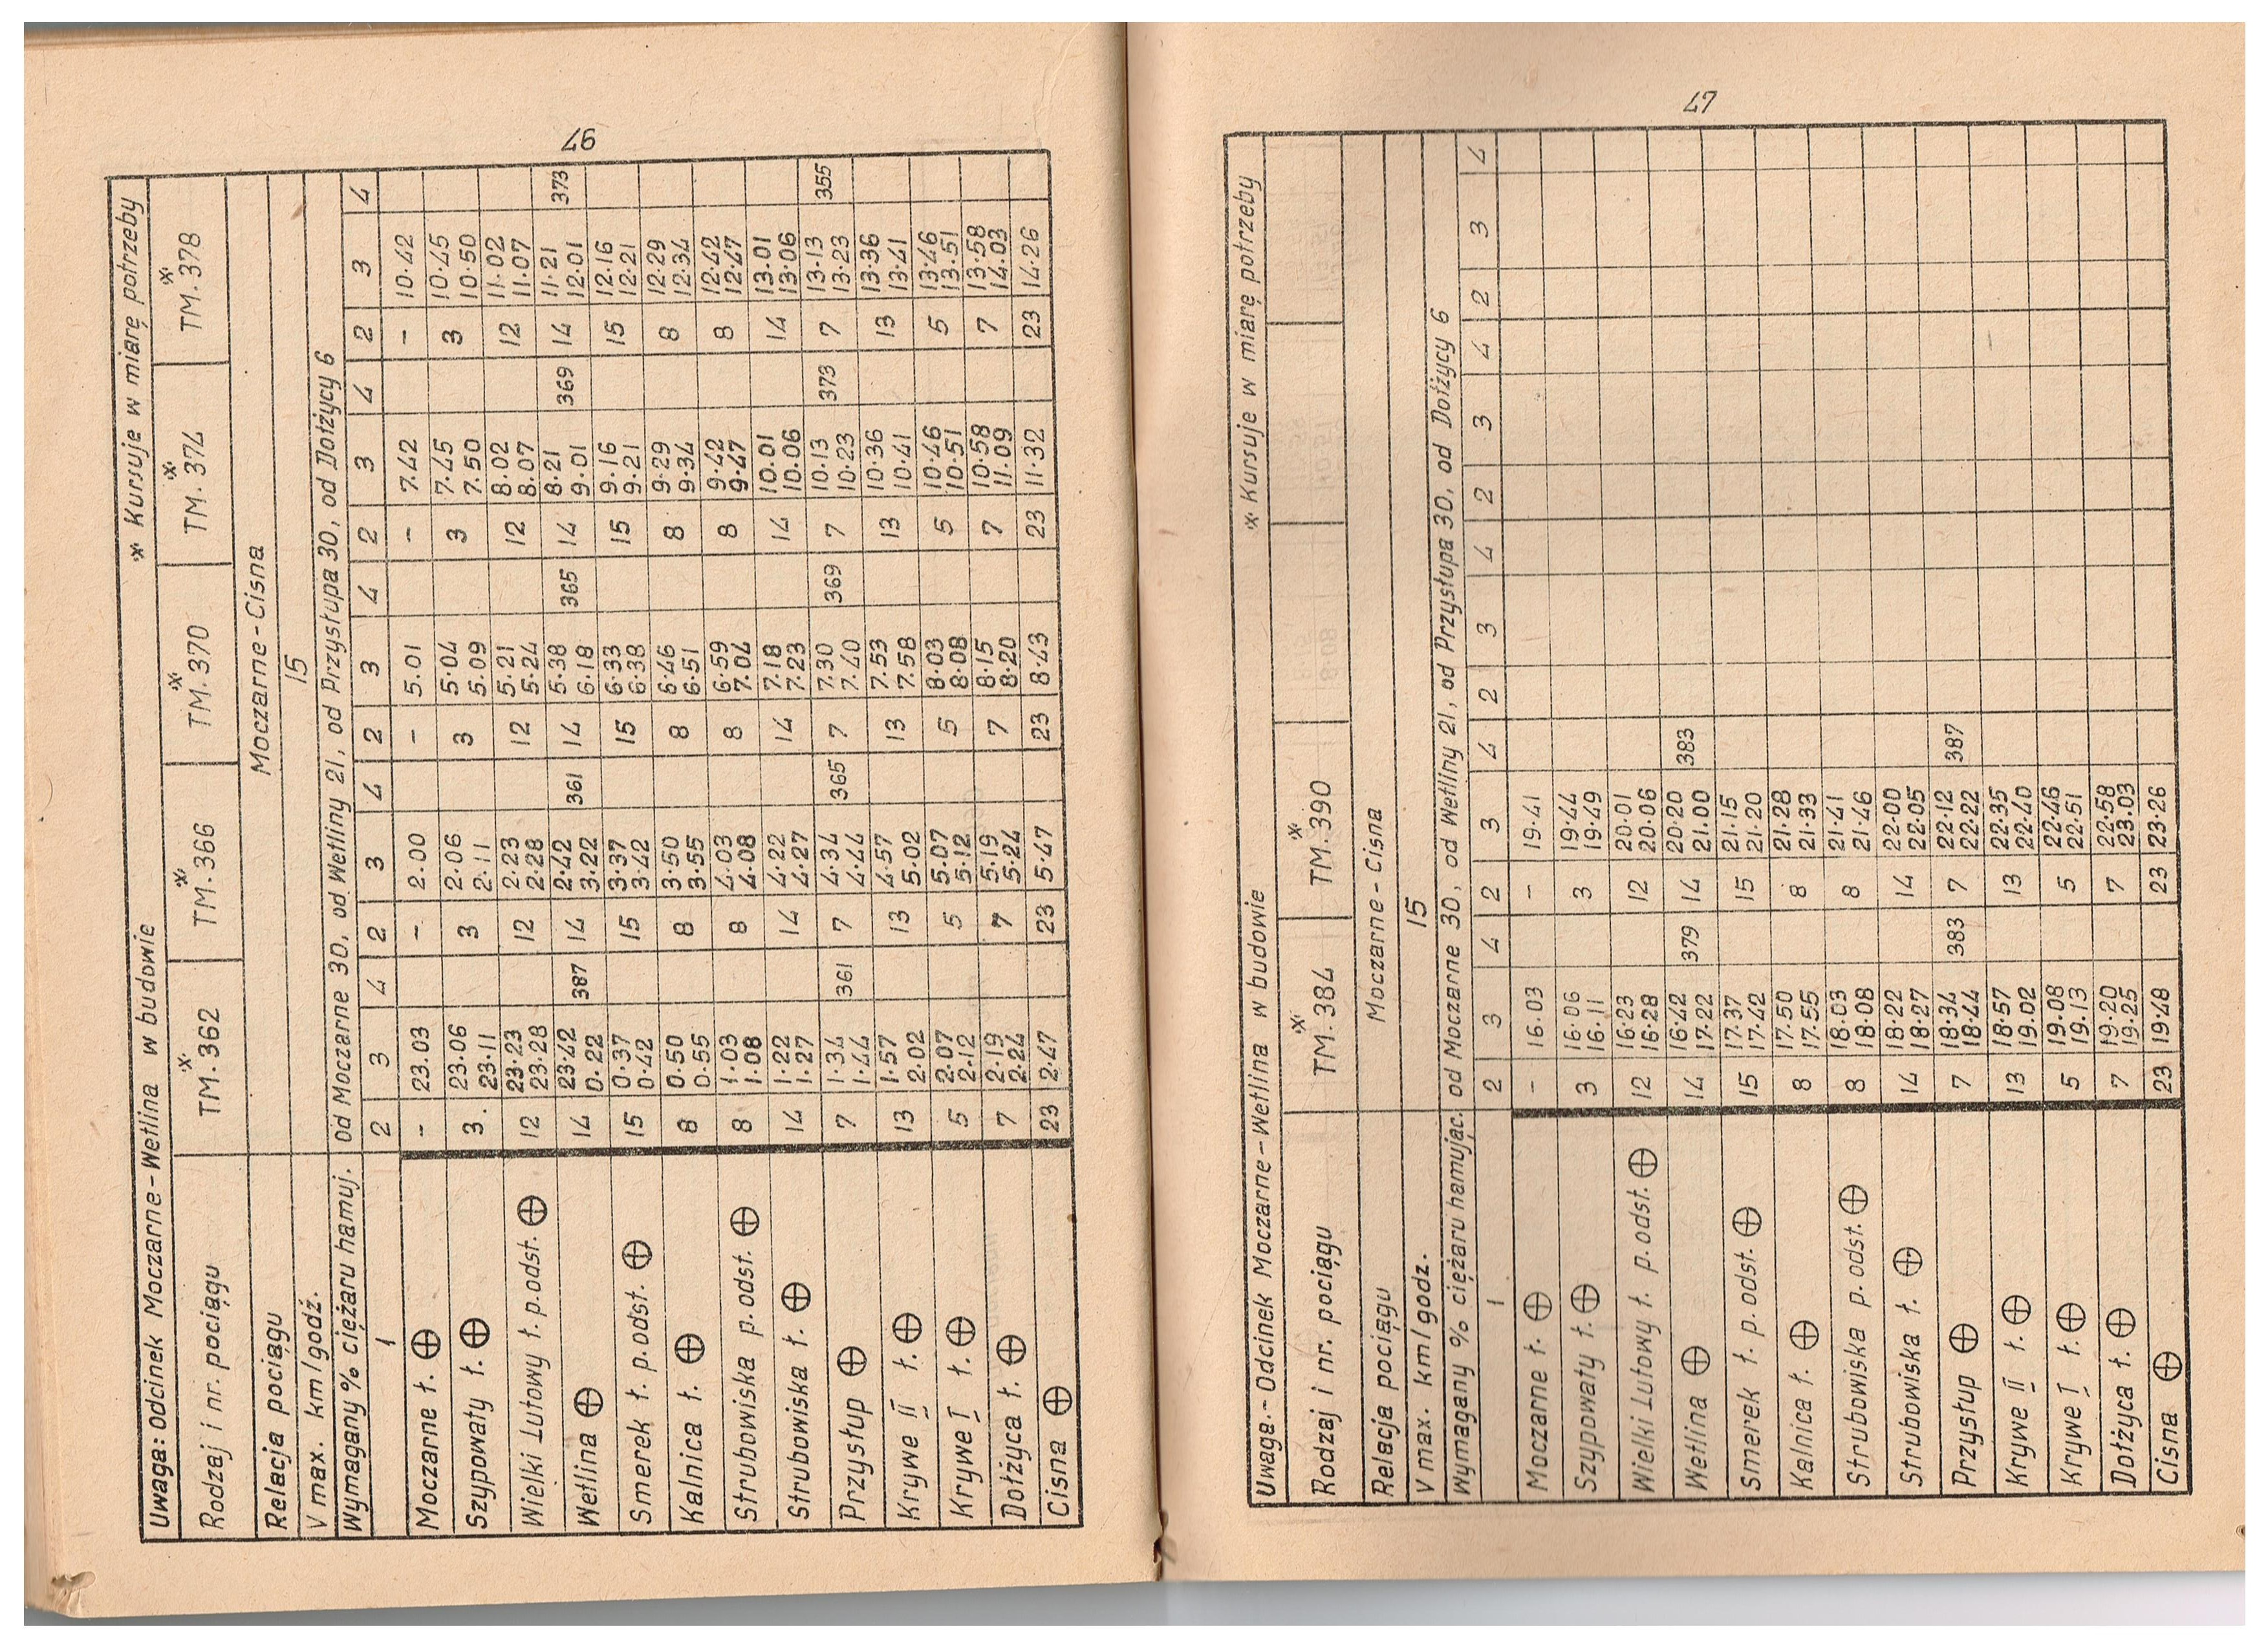 46
Uwaga: Odcinek Moczarne-Wetlina w budowie * Kursuje w miarę potrzeby
Rodzaj i nr. pociągu * TM.362 * TM.366 * TM.370 * TM.374 * TM.378
Relacja pociągu Moczarne-Cisna
V max. km/godź. 15
Wymagany % ciężaru hamuj. od Moczarne 30, od Wetliny 21, od Przysłupa 30, od Dołżycy 6
1 2 3 4 2 3 4 2 3 4 2 3 4 2 3 4
Moczarne ł. ⊕ - 23.03 - 2.00 - 5.01 - 7.42 - 10.42
Szypowaty ł. ⊕ 3. 23.06 3 2.06 3 5.04 3 7.45 3 10.45
23.11 2.11 5.09 7.50 10.50
Wielki Lutowy ł. p.odst. ⊕ 12 23.23 12 2.23 12 5.21 12 8.02 12 11.02
23.28 2.28 5.24 8.07 11.07
Wetlina ⊕ 14 23.42 387 14 2.42 361 14 5.38 365 14 8.21 369 14 11.21 373
0.22 3.22 6.18 9.01 12.01
Smerek ł. p.odst. ⊕ 15 0.37 15 3.37 15 6.33 15 9.16 15 12.16
0.42 3.42 6.38 9.21 12.21
Kalnica ł. ⊕ 8 0.50 8 3.50 8 6.46 8 9.29 8 12.29
0.55 3.55 6.51 9.34 12.34
Strubowiska p.odst. ⊕ 8 1.03 8 4.03 8 6.59 8 9.42 8 12.42
1.08 4.08 7.04 9.47 12.47
Strubowiska ł. ⊕ 14 1.22 14 4.22 14 7.18 14 10.01 14 13.01
1.27 4.27 7.23 10.06 13.06
Przysłup ⊕ 7 1.34 361 7 4.34 365 7 7.30 369 7 10.13 373 7 13.13 355
1.44 4.44 7.40 10.23 13.23
Krywe II ł. ⊕ 13 1.57 13 4.57 13 7.53 13 10.36 13 13.36
2.02 5.02 7.58 10.41 13.41
Krywe I ł. ⊕ 5 2.07 5 5.07 5 8.03 5 10.46 5 13.46
2.12 5.12 8.08 10.51 13.51
Dołżyca ł. ⊕ 7 2.19 7 5.19 7 8.15 7 10.58 7 13.58
2.24 5.24 8.20 11.09 14.03
Cisna ⊕ 23 2.47 23 5.47 23 8.43 23 11.32 23 14.26
47
Uwaga.- Odcinek Moczarne-Wetlina w budowie * Kursuje w miarę potrzeby
Rodzaj i nr. pociągu * TM.384 * TM.390
Relacja pociągu Moczarne-Cisna
V max. km/godz. 15
Wymagany % ciężaru hamując. od Moczarne 30, od Wetliny 21, od Przysłupa 30, od Dołżycy 6
1 2 3 4 2 3 4 2 3 4 2 3 4 2 3 4
Moczarne ł. ⊕ - 16.03 - 19.41
Szypowaty ł. ⊕ 3 16.06 3 19.44
16.11 19.49
Wielki Lutowy ł. p.odst. ⊕ 12 16.23 12 20.01
16.28 20.06
Wetlina ⊕ 14 16.42 379 14 20.20 383
17.22 21.00
Smerek ł. p.odst. ⊕ 15 17.37 15 21.15
17.42 21.20
Kalnica ł. ⊕ 8 17.50 8 21.28
17.55 21.33
Strubowiska p.odst. ⊕ 8 18.03 8 21.41
18.08 21.46
Strubowiska ł. ⊕ 14 18.22 14 22.00
18.27 22.05
Przysłup ⊕ 7 18.34 383 7 22.12 387
18.44 22.22
Krywe II ł. ⊕ 13 18.57 13 22.35
19.02 22.40
Krywe I ł. ⊕ 5 19.08 5 22.46
19.13 22.51
Dołżyca ł. ⊕ 7 19.20 7 22.58
19.25 23.03
Cisna ⊕ 23 19.48 23 23.26